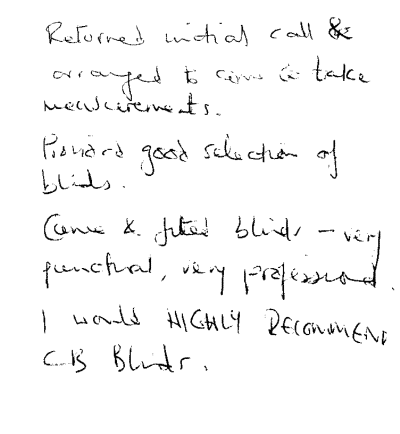 Returned initial call &
arranged to come & take
measurements.
Provided good selection of
blinds.
Came & fitted blinds - very
punctual, very professional.
I would HIGHLY RECOMMEND
CB Blinds.